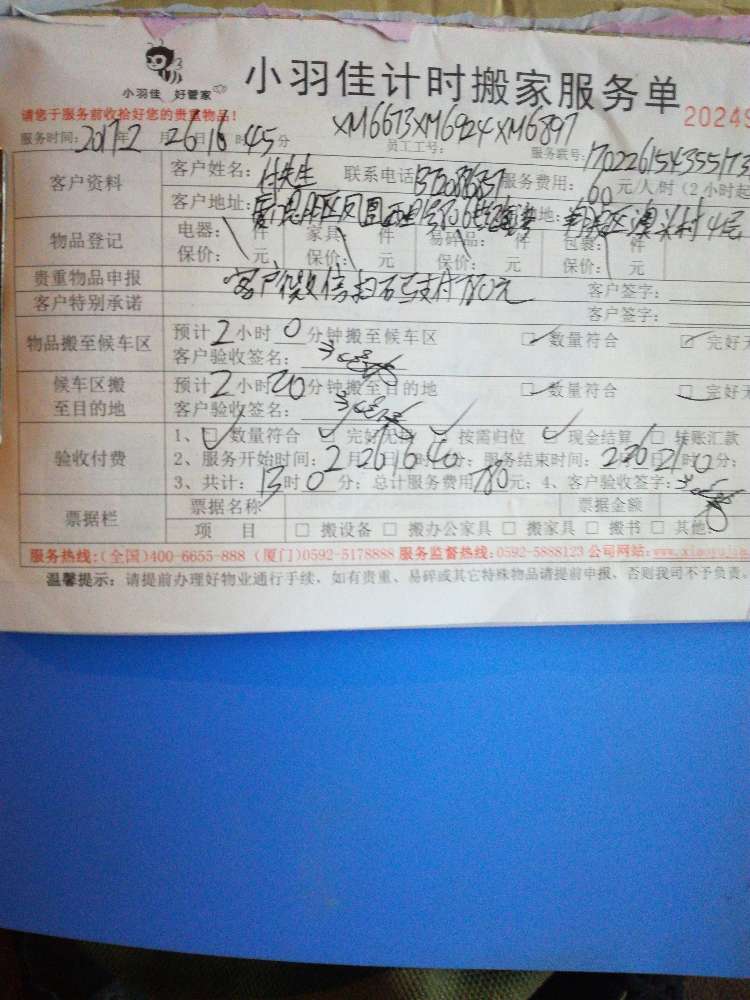 小羽佳 好管家
小羽佳计时搬家服务单
20249
请您于服务前收拾好您的贵重物品!
服务时间:2017年2月26日16时45分 员工工号:XM6673XM6924XM6897 服务账号:
客户资料 客户姓名: 联系电话 服务费用:60元/人/时(2小时起
客户地址: 澳头村4尾
物品登记 电器: 件 家具: 件 易碎品: 件 包裹: 件
保价: 元 保价: 元 保价: 元 保价: 元
贵重物品申报 客户微信扫码已支付780元 客户签字:
客户特别承诺 客户签字:
物品搬至候车区 预计2小时0分钟搬至候车区 □数量符合 □完好无
客户验收签名:
候车区搬至目的地 预计2小时20分钟搬至目的地 □数量符合 □完好无
客户验收签名:
验收付费 1、□数量符合 □完好无缺 □按需归位 □现金结算 □转账汇款
2、服务开始时间:2月26日16时40分;服务结束时间:2月26日21时0分;
3、共计:13时0分;总计服务费用780元;4、客户验收签字:
票据栏 票据名称 票据金额
项 目 □搬设备 □搬办公家具 □搬家具 □搬书 □其他:
服务热线:(全国)400-6655-888 (厦门)0592-5178888 服务监督热线:0592-5888123 公司网站:
温馨提示: 请提前办理好物业通行手续, 如有贵重、易碎或其它特殊物品请提前申报, 否则我司不予负责。